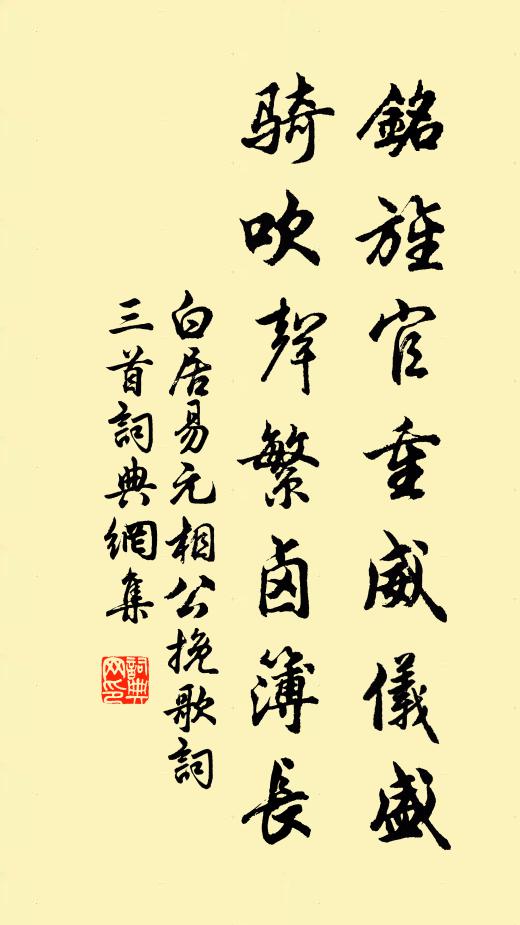 銘旌官重威儀盛
騎吹聲繁鹵簿長
白居易元相公挽歌詞
三首詞典網集
詞典
网印